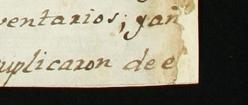 ventarios; gan
uplicaron de e